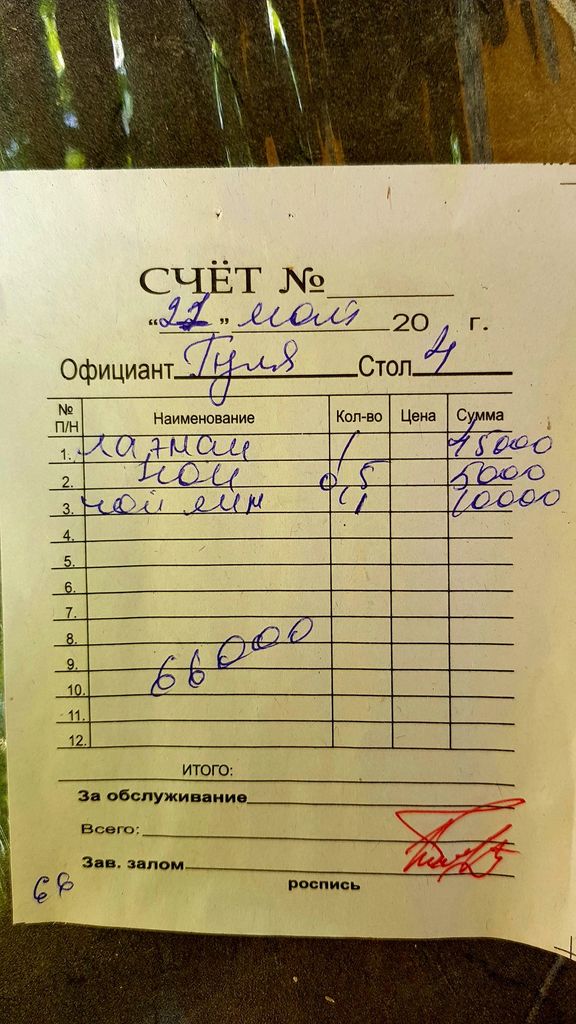 СЧЁТ №
"22" май 20 г.
Официант Гуля Стол 4
№ П/Н Наименование Кол-во Цена Сумма
1. лагман 1 45000
2. чой 0,5 5000
3. чой лим 1 10000
4.
5.
6.
7.
8.
9.
66000
10.
11.
12.
ИТОГО:
За обслуживание
Всего:
Зав. залом
роспись
66